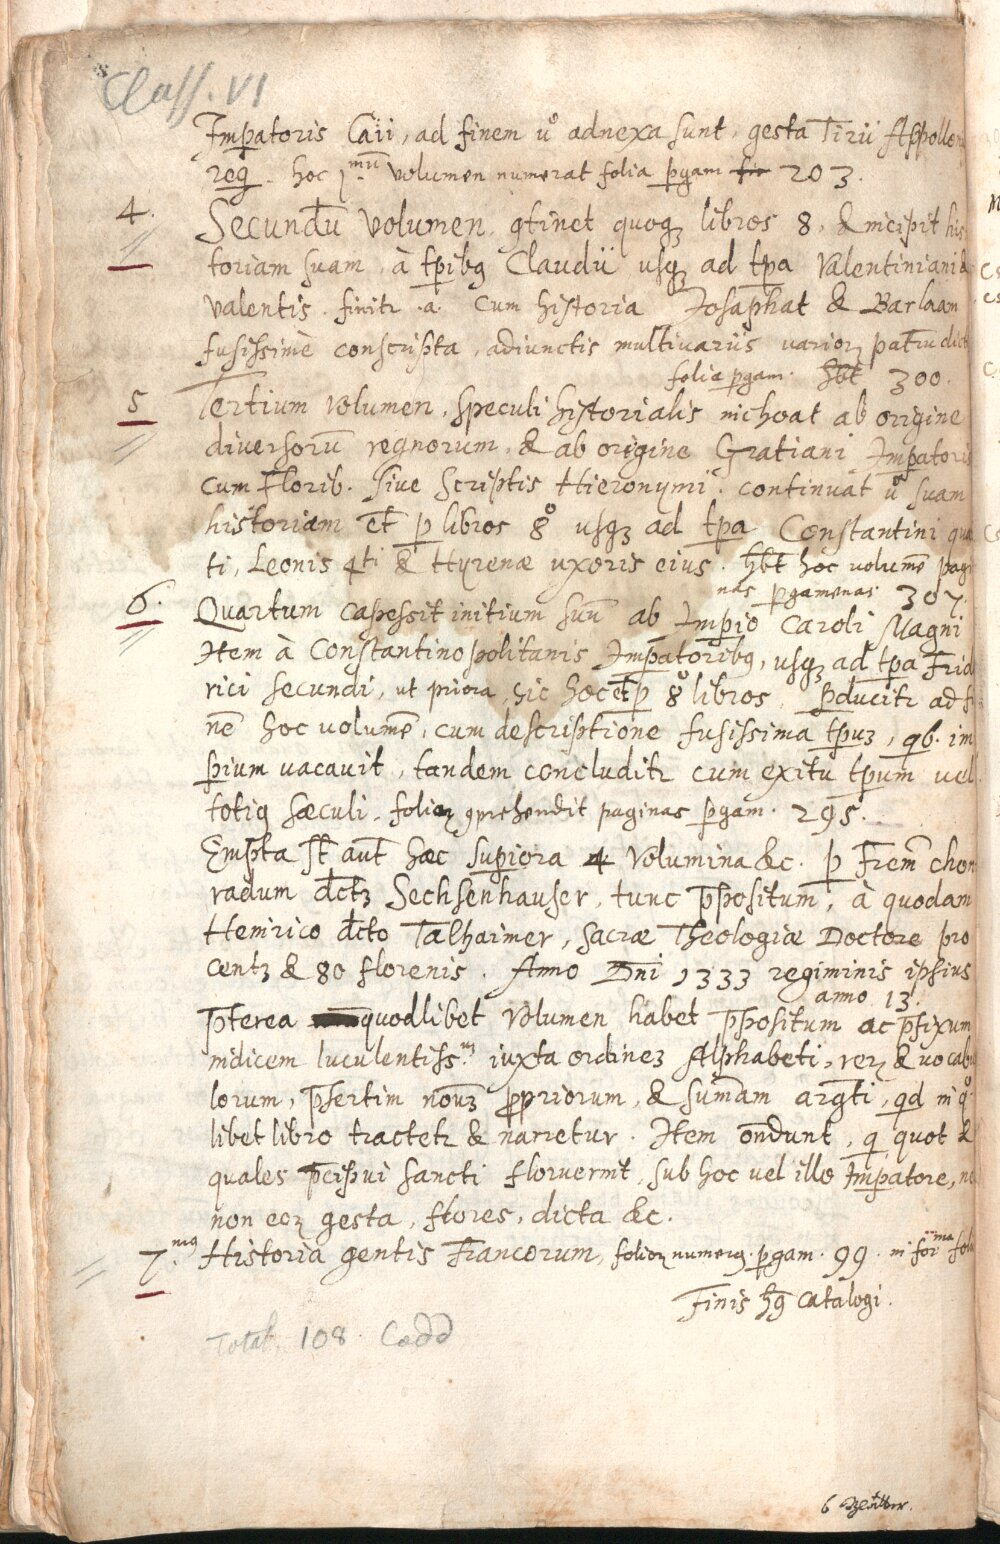 Class. VI
Imp̱atoris Caii, ad finem ů adnexa sunt, gesta Tirii Appollon
reg. hoc 1mū volumen numerat folia p̱gam 203.
4. Secundū Volumen ꝯtinet quoqꝫ libros 8, & incipit his
toriam suam à tp̱ibꝯ Claudii usqꝫ ad tp̱a Valentiniani &
valentis. finitr .a. cum historia Josaphat & Barlaam
fusissimè conscripta, adiunctis multivariis varioꝝ patrū dict
folia p̱gam. hb̄t 300.
5 Tertium volumen, Speculi historialis inchoat ab origine
diversorū regnorum, & ab origine Gratiani Imp̱atoris
cum Florib. sive Scriptis Hieronymi. continuat ů suam
historiam et p̱ libros 8̊ usqꝫ ad tp̱a Constantini qua
ti, Leonis 4ti & Hyrenæ uxoris eius. hb̄t hoc volumē pagi
nas p̱gamenas 307.
6. Quartum capessit initium suū ab Imp̱io Caroli Magni
Item à Constantinopolitanis Imp̱atoribꝯ, usqꝫ ad tp̱a Frid
rici secundi, ut priora, sic hoc et p̱ 8̊ libros. p̱ducitr ad fi
nē hoc volumē, cum descriptione fusissima tp̱uꝫ, qb. im
p̱ium vacavit, tandem concluditr cum exitu tp̱um vel
totiꝯ sæculi. folioꝝ ꝯprehendit paginas p̱gam. 295.
Empta st̄ aut̄ hæc sup̱iora 4 Volumina &c. p̱ Frem̄ chon
radum dc̄tꝫ Sechsenhauser, tunc p̄positum, à quodam
Heinrico dc̄to Talhaimer, Sacræ Theologiæ Doctore pro
centꝫ & 80 florenis. Anno Dn̄i 1333 regiminis ipsius
anno 13.
p̄terea quodlibet Volumen habet p̄positum ac p̄fixum
indicem luculentissm iuxta ordineꝫ Alphabeti, reꝝ & vocabu
lorum, p̄sertim nōuꝫ ꝓpriorum, & sum̄am argt̄i, qd in q̊
libet libro tractetr & narretur. Item ondunt, q quot &
quales p̄cipui sancti floruerint, sub hoc vel illo Imp̱atore, ne
non eoꝝ gesta, flores, dicta &c.
7.mꝯ Historia gentis Francorum, folioꝝ numerꝯ. p̱gam. 99. in formâ foli
Finis hꝯ catalogi.
Total. 108 Codd